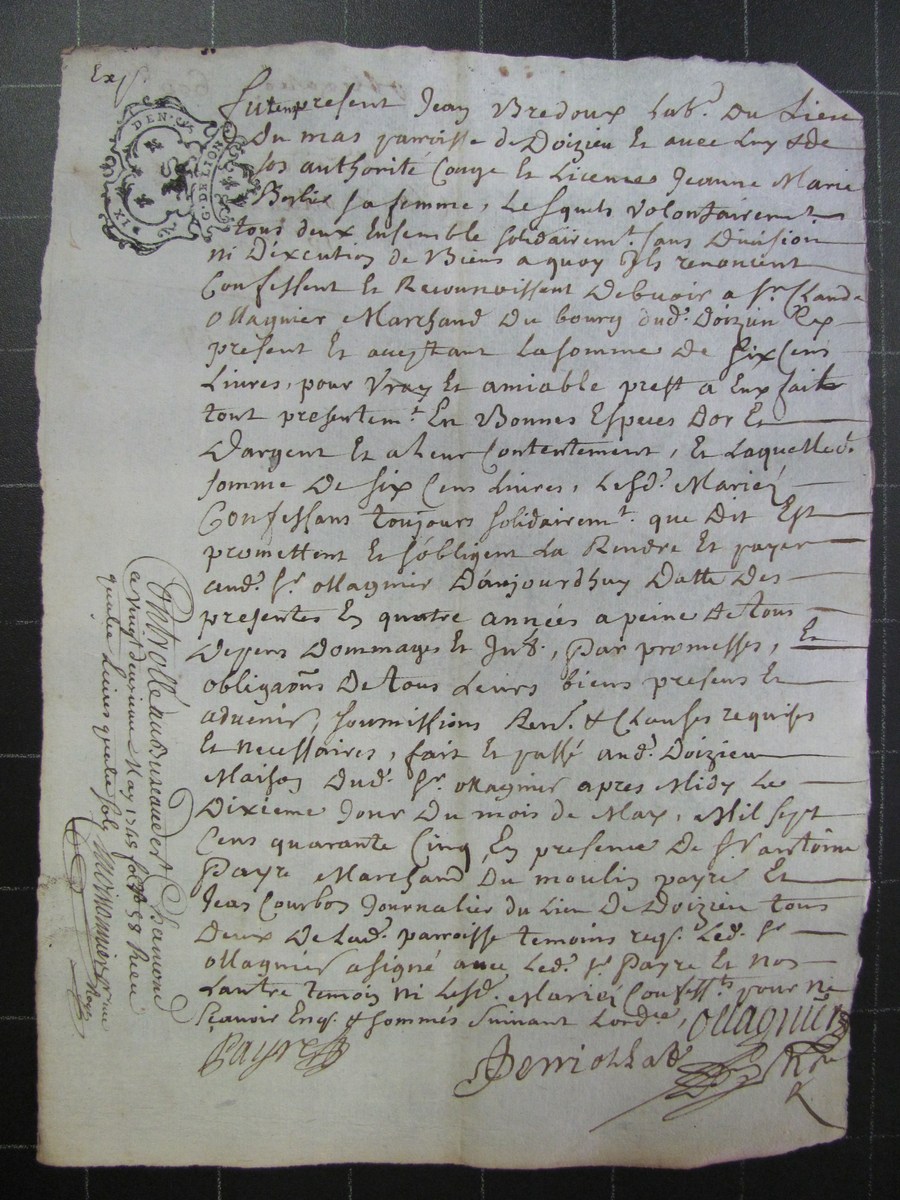 Exp.
SIX DEN.ers
G. DE LION
Furent present Jean Bredoux Lab.r Du Lieu
Du mas parroisse de Doizieu Et avec Luy & de
ses authorité Conge Et Licence Jeanne Marie
sa femme, Lesquels volontairem.t
tous deux Ensemble solidairem.t sans Division
ni Dexecution de Biens a quoy Ils renoncent
Confessent Et Reconnoissent Debvoir a Sr. Claude
Ollagnier Marchand Du bourg dud.t Doizieu
present Et aceptant La somme De Six Cens
Livres, pour Vray Et amiable prest a Eux fait
tout presentem.t En Bonnes Especes Dor Et
Dargent Et a Leur Contentement, Et Laquelle d.
somme De Six Cens Livres, Lesd. Mariéz
Confessans toujours solidairem.t que Dit Est
promettent Et s'obligent La Rendre Et payer
aud. Sr. Ollagnier Daujourdhuy Datte Des
presentes En quatre années a peine De tous
Depens Dommages Et Int., Par promesses, Et
obligaons De tous Leurs biens presens Et
advenir, soumissions Ren. & Clauses requises
Et necessaires, fait Et passé aud. Doizieu
Maison Dud. Sr. Ollagnier apres Midy Le
Dixieme Jour Du mois de May, Mil Sept
Cens quarante Cinq En presence De Sr antoine
Payre Marchand Du moulin payre Et
Jean Courbon Journalier du Lieu De Doizieu tous
Deux De Lad. parroisse temoins req. Led. Sr
Ollagnier a signé avec Led. Sr. Payre Et non
Lautre temoin ni Lesd. Mariéz Confess.ts pour ne
Scavoir Enq. & sommés Suivant Lord.ce, Ollagnier
Payre
Controllé au Bureau de St Chamond
a vingt deuxieme May 1745 folio 58 Receu
quatre Livres quatre sols